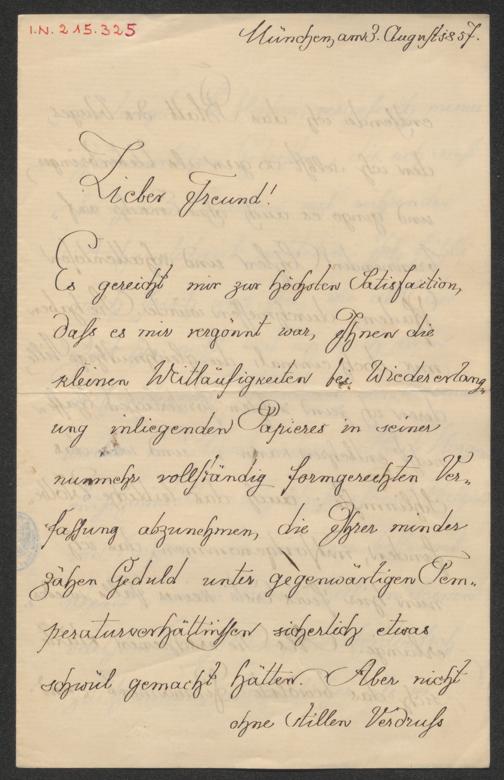 I.N. 215.325
München, am 3. August 1887.
Lieber Freund!
Es gereicht mir zur höchsten Satisfaction,
daß es mir vergönnt war, Ihnen die
kleinen Weitläufigkeiten bei Wiedererlang-
ung inliegenden Papieres in seiner
nunmehr vollständig formgerechten Ver-
fassung abzunehmen, die Ihrer minder
zähen Geduld unter gegenwärtigen Tem-
peraturverhältnissen sicherlich etwas
schwül gemacht hätten. Aber nicht
ohne stillen Verdruß